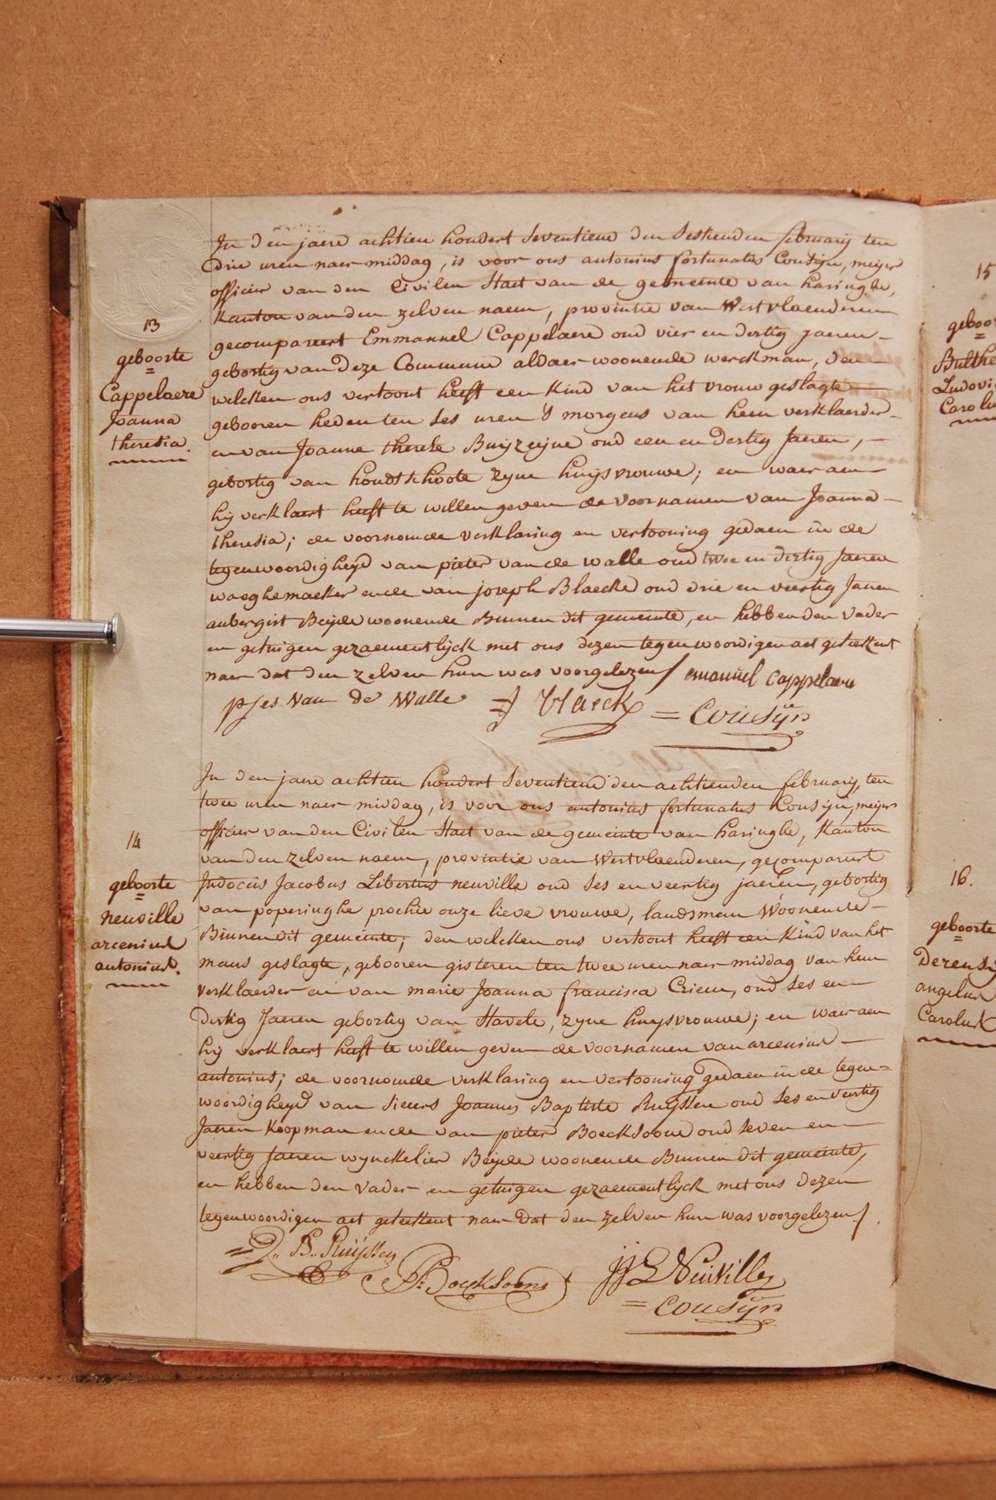 13
geboorte
=
Cappelaere
Joanna
theresia.
In den jaere achtien hondert seventiend den sesthienden february ten
drie uren naer middag, is voor ons antonius fortunatus Cousijn, meijer
officier van den Civilen Staet van de gemeente van haringhe,
Kanton van den zelven naem, provintie van Westvlaenderen
gecompareert Emmanuel Cappelaere oud vier en dertig jaeren
gebortig van deze Commune aldaer woonende werckman, den
welcken ons vertoont heeft een kind van het vrouw geslagte
gebooren heden ten ses uren 's morgens van hem verklaerder
en van Joanne therese Buijzeijne oud een en dertig Jaeren,
gebortig van hondtschoote zijne huijsvrouwe; en waer aen
hij verklaert heeft te willen geven de voornamen van Joanna
theresia; de voornomde verklaring en vertooning gedaen in de
tegenwoordigheijd van pieter van de walle oud twee en dertig Jaeren
waeghemaeker ende van joseph Blaecke oud drie en veertig Jaeren
aubergist Beijde woonende Binnen dit gemeente, en hebben den vader
en getuigen gezaementlijck met ons dezen tegenwoordigen act geteekent
naer dat den zelven hun was voorgelezen/ emanuel cappelaere
van de Walle =J Vlaeck = Cousijn
14
geboorte
=
neuville
arcenius
antonius.
In den jaere achtien hondert seventiend den achtienden february, ten
twee uren naer middag, is voor ons antonius fortunatus Cousijn, meijer
officier van den Civilen Staet van de gemeente van haringhe, Kanton
van den zelven naem, provintie van Westvlaenderen, gecompareert
Judocus Jacobus Libertus neuville oud ses en veertig jaeren, gebortig
van poperinghe prochie onze lieve vrouwe, landsman Woonende
Binnen dit gemeente, den welcken ons vertoont heeft een Kind van het
mans geslagte, gebooren gisteren ten twee uren naer middag van hem
verklaerder en van marie Joanna francisca Criem, oud ses en
dertig Jaeren gebortig van Stavele, zijne huijsvrouwe; en waer aen
hij verklaert heeft te willen geven de voornamen van arcenius
antonius; de voornomde verklaring en vertooning gedaen in de tegen=
woordigheijd van sieurs Joannes Baptiste Ruijssen oud ses en veertig
Jaeren Koopman ende van pieter Boecksoone oud seven en
veertig Jaeren wynckelier Beijde woonende Binnen dit gemeente,
en hebben den vader en getuigen gezaementlijck met ons dezen
tegenwoordigen act geteekent naer dat den zelven hun was voorgelezen/.
= J. B. Ruijssen
P: Boecksoone
JJL Neuville
= Cousijn
15
geboor
=
Bulthe
Ludovi
Carolu
16.
geboorte
=
Derensy
angelus
Carolus